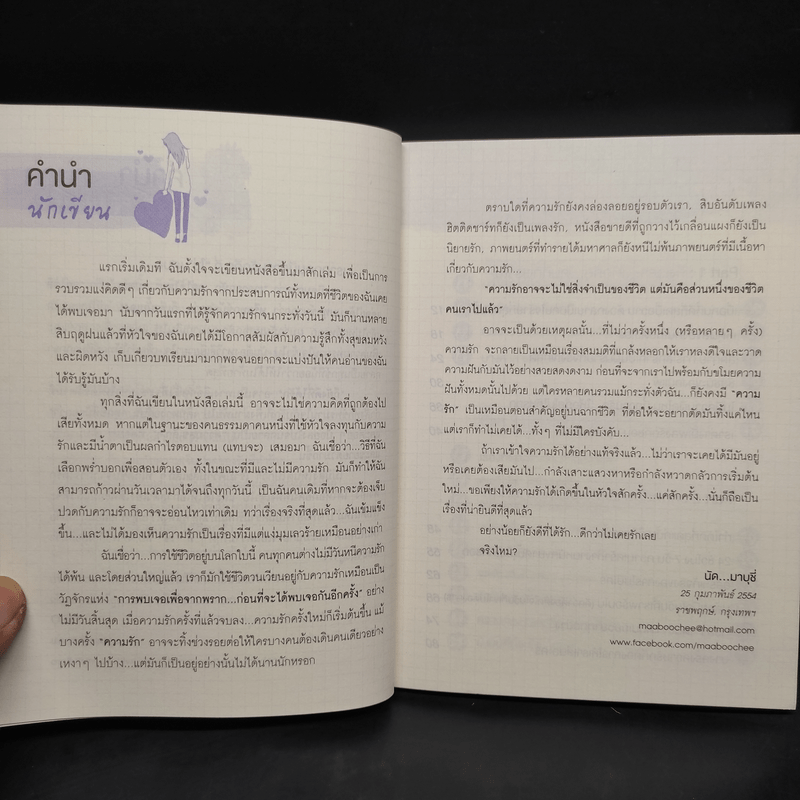 คำนำ
นักเขียน
แรกเริ่มเดิมที ฉันตั้งใจจะเขียนหนังสือขึ้นมาสักเล่ม เพื่อเป็นการ
รวบรวมแง่คิดดีๆ เกี่ยวกับความรักจากประสบการณ์ทั้งหมดที่ชีวิตของฉันเคย
ได้พบเจอมา นับจากวันแรกที่ได้รู้จักความรักจนกระทั่งวันนี้ มันก็นานหลาย
สิบฤดูฝนแล้วที่หัวใจของฉันเคยได้มีโอกาสสัมผัสกับความรู้สึกทั้งสุขสมหวัง
และผิดหวัง เก็บเกี่ยวบทเรียนมามากพอจนอยากจะแบ่งปันให้คนอ่านของฉัน
ได้รับรู้มันบ้าง
ทุกสิ่งที่ฉันเขียนในหนังสือเล่มนี้ อาจจะไม่ใช่ความคิดที่ถูกต้องไป
เสียทั้งหมด หากแต่ในฐานะของคนธรรมดาคนหนึ่งที่ใช้หัวใจลงทุนกับความ
รักและมีน้ำตาเป็นผลกำไรตอบแทน (แทบจะ) เสมอมา ฉันเชื่อว่า...วิธีที่ฉัน
เลือกพร่ำบอกเพื่อสอนตัวเอง ทั้งในขณะที่มีและไม่มีความรัก มันก็ทำให้ฉัน
สามารถก้าวผ่านวันเวลามาได้จนถึงทุกวันนี้ เป็นฉันคนเดิมที่หากจะต้องเจ็บ
ปวดกับความรักก็อาจจะอ่อนไหวเท่าเดิม ทว่าเรื่องจริงที่สุดแล้ว...ฉันเข้มแข็ง
ขึ้น...และไม่ได้มองเห็นความรักเป็นเรื่องที่มีแต่แง่มุมเลวร้ายเหมือนอย่างเก่า
ฉันเชื่อว่า...การใช้ชีวิตอยู่บนโลกใบนี้ คนทุกคนต่างไม่มีวันหนีความรัก
ได้พ้น และโดยส่วนใหญ่แล้ว เราก็มักใช้ชีวิตวนเวียนอยู่กับความรักเหมือนเป็น
วัฏจักรแห่ง "การพบเจอเพื่อจากพราก...ก่อนที่จะได้พบเจอกันอีกครั้ง" อย่าง
ไม่มีวันสิ้นสุด เมื่อความรักครั้งที่แล้วจบลง...ความรักครั้งใหม่ก็เริ่มต้นขึ้น แม้
บางครั้ง "ความรัก" อาจจะทิ้งช่วงรอยต่อให้ใครบางคนต้องเดินคนเดียวอย่าง
เหงาๆ ไปบ้าง...แต่มันก็เป็นอยู่อย่างนั้นไม่ได้นานนักหรอก
ตราบใดที่ความรักยังคงล่องลอยอยู่รอบตัวเรา, สิบอันดับเพลง
ฮิตติดชาร์ทก็ยังเป็นเพลงรัก, หนังสือขายดีที่ถูกวางไว้เกลื่อนแผงก็ยังเป็น
นิยายรัก, ภาพยนตร์ที่ทำรายได้มหาศาลก็ยังหนีไม่พ้นภาพยนตร์ที่มีเนื้อหา
เกี่ยวกับความรัก...
"ความรักอาจจะไม่ใช่สิ่งจำเป็นของชีวิต แต่มันคือส่วนหนึ่งของชีวิต
คนเราไปแล้ว"
อาจจะเป็นด้วยเหตุผลนั้น...ที่ไม่ว่าครั้งหนึ่ง (หรือหลายๆ ครั้ง)
ความรัก จะกลายเป็นเหมือนเรื่องสมมติที่แกล้งหลอกให้เราหลงดีใจและวาด
ความฝันกับมันไว้อย่างสวยสดงดงาม ก่อนที่จะจากเราไปพร้อมกับขโมยความ
ฝันทั้งหมดนั้นไปด้วย แต่ใครหลายคนรวมแม้กระทั่งตัวฉัน...ก็ยังคงมี "ความ
รัก" เป็นเหมือนตอนสำคัญอยู่บนฉากชีวิต ที่ต่อให้จะอยากตัดมันทิ้งแค่ไหน
แต่เราก็ทำไม่เคยได้...ทั้งๆ ที่ไม่มีใครบังคับ...
ถ้าเราเข้าใจความรักได้อย่างแท้จริงแล้ว...ไม่ว่าเราจะเคยได้มีมันอยู่
หรือเคยต้องเสียมันไป...กำลังเสาะแสวงหาหรือกำลังหวาดกลัวการเริ่มต้น
ใหม่...ขอเพียงให้ความรักได้เกิดขึ้นในหัวใจสักครั้ง...แค่สักครั้ง...นั่นก็ถือเป็น
เรื่องที่น่ายินดีที่สุดแล้ว
อย่างน้อยก็ยังดีที่ได้รัก...ดีกว่าไม่เคยรักเลย
จริงไหม?
นัด...มาบุชี่
25 กุมภาพันธ์ 2554
ราชพฤกษ์, กรุงเทพฯ
maaboochee@hotmail.com
www.facebook.com/maaboochee